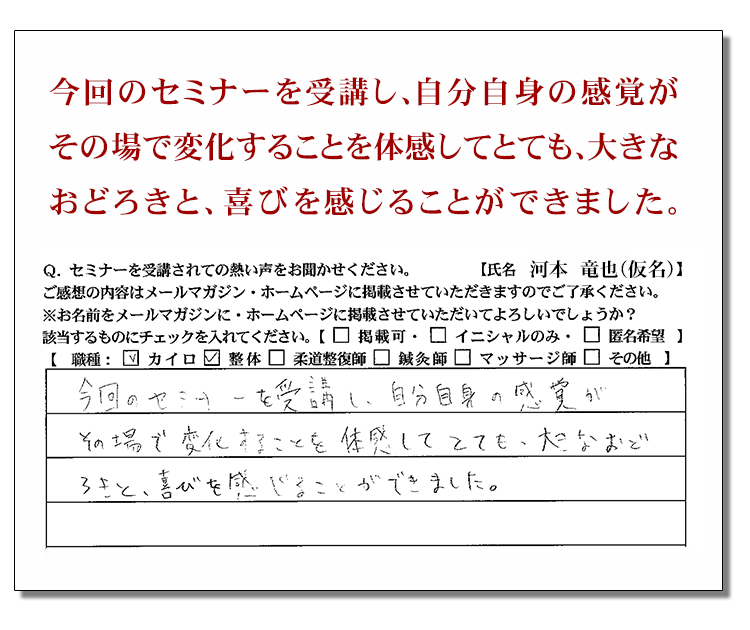 今回のセミナーを受講し、自分自身の感覚が
その場で変化することを体感してとても、大きな
おどろきと、喜びを感じることができました。
Q. セミナーを受講されての熱い声をお聞かせください。 【氏名 河本 竜也(仮名)】
ご感想の内容はメールマガジン・ホームページに掲載させていただきますのでご了承ください。
※お名前をメールマガジンに・ホームページに掲載させていただいてよろしいでしょうか？
該当するものにチェックを入れてください。【 □ 掲載可・ □ イニシャルのみ・ □ 匿名希望 】
【 職種： ☑ カイロ ☑ 整体 □ 柔道整復師 □ 鍼灸師 □ マッサージ師 □ その他 】
今回のセミナーを受講し、自分自身の感覚が
その場で変化することを体感してとても、大きなおど
ろきと、喜びを感じることができました。